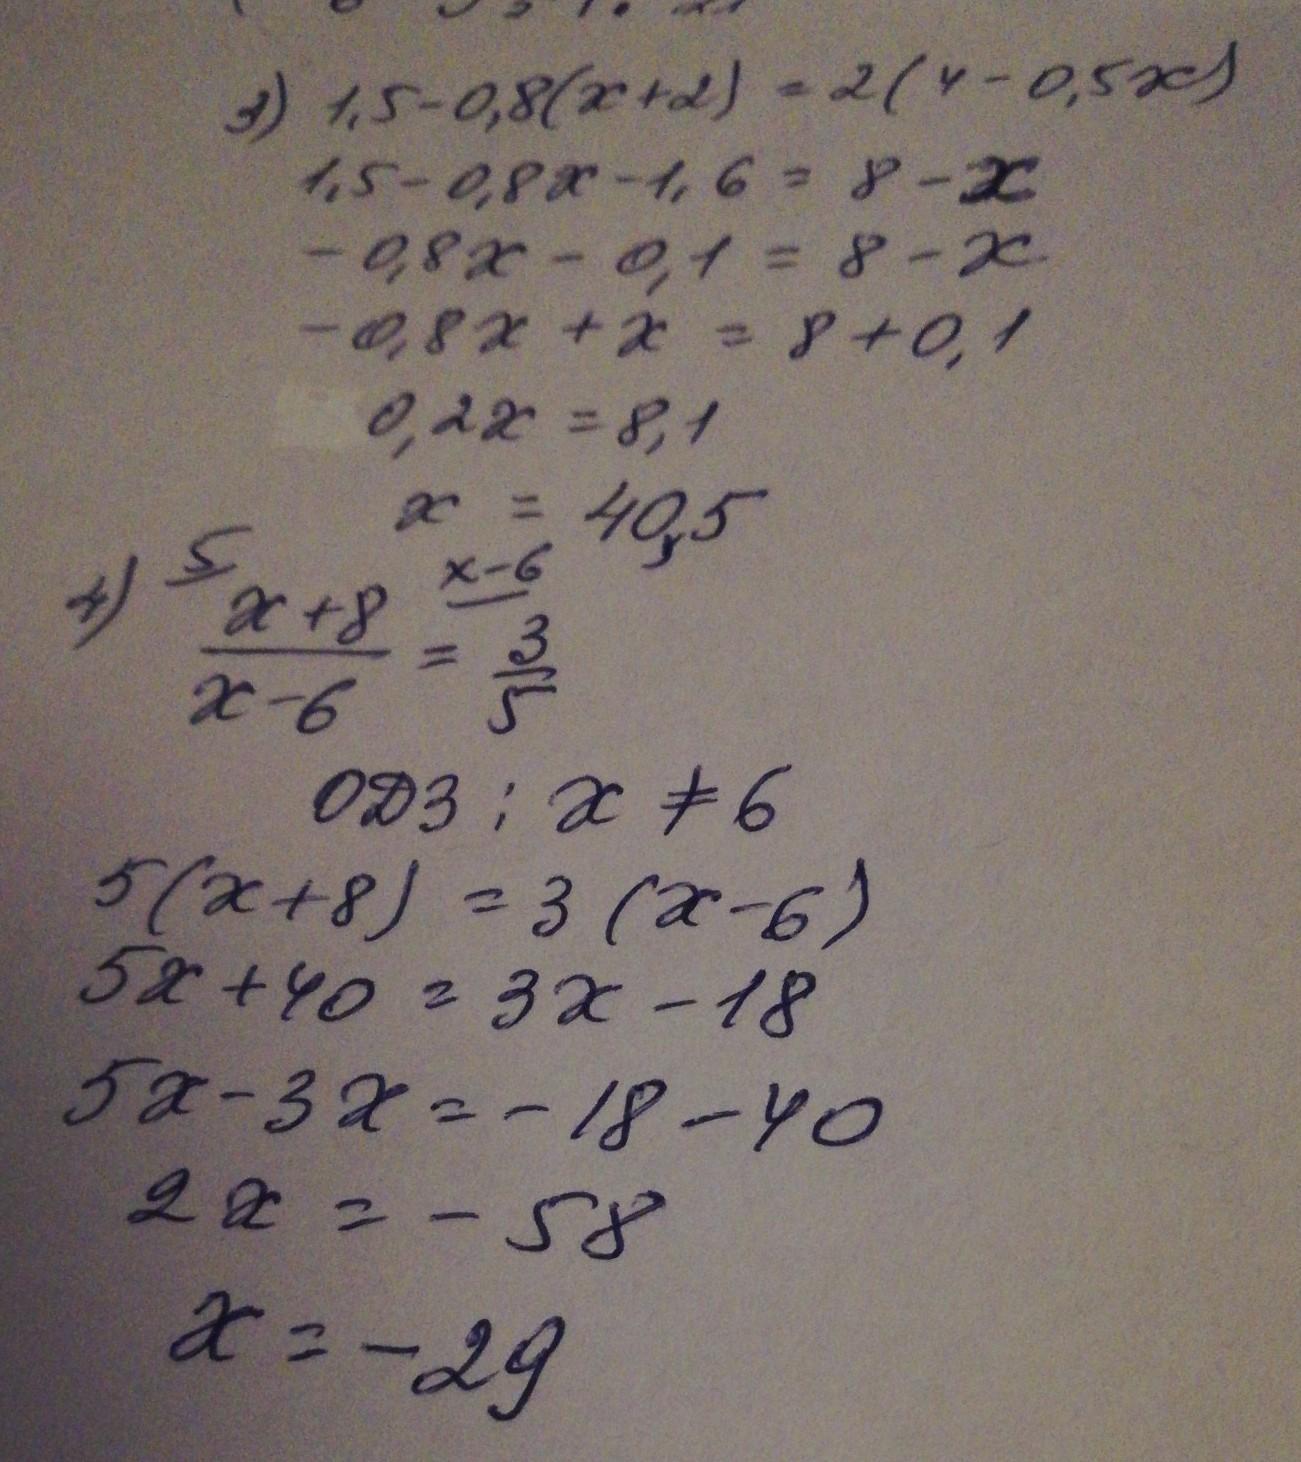 3) 1,5-0,8(x+2) = 2(4-0,5x)
1,5-0,8x-1,6 = 8-x
-0,8x-0,1 = 8-x
-0,8x+x = 8+0,1
0,2x = 8,1
x = 40,5
4) 5 x+8 x-6
x-6 = 3
5
ОДЗ: x ≠ 6
5(x+8) = 3(x-6)
5x+40 = 3x-18
5x-3x = -18-40
2x = -58
x = -29